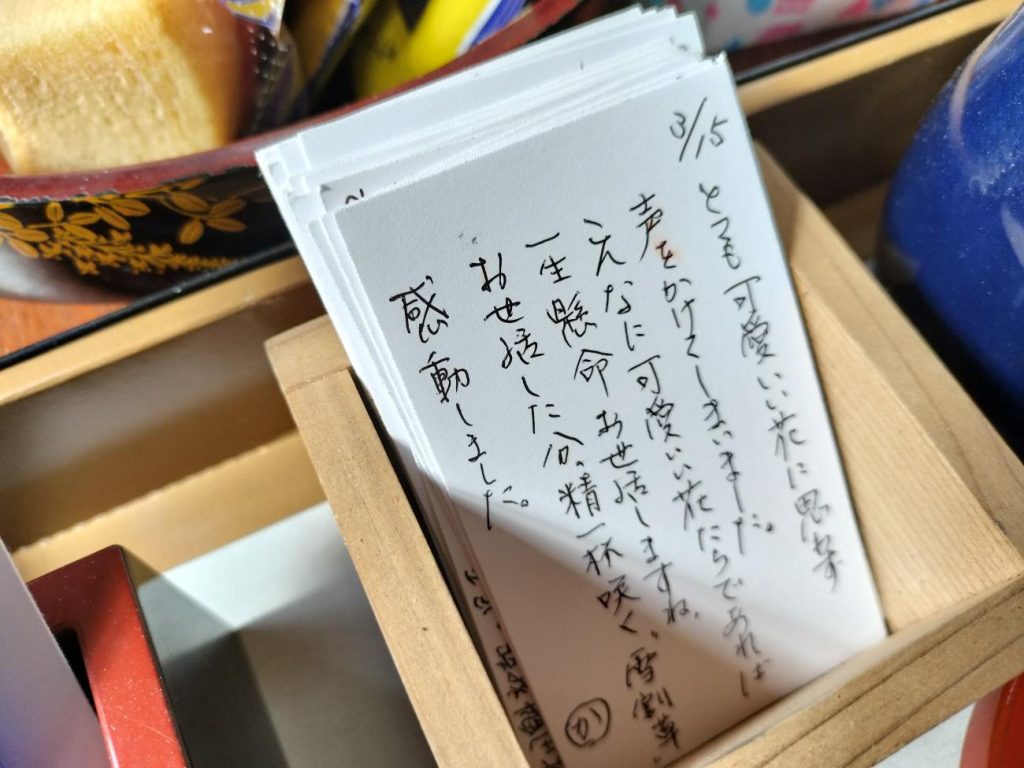 3/15
とても可愛いい花に思わず
声をかけてしまいました。
こんなに可愛いい花たちであれば
一生懸命お世話しますね。
お世話した分、精一杯咲く。雪割草。
感動しました。
か